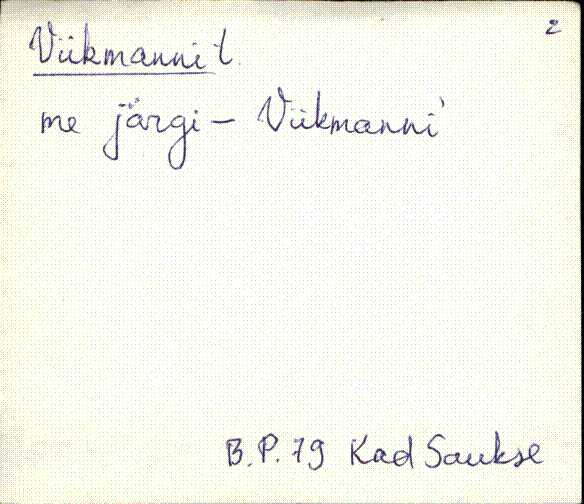 2
Viikmanni t.
me järgi – Viikmanni'
B.P. 79 Kad Saukse